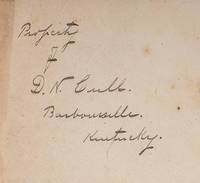 Property
of
D. N. Cull.
Barboursville.
Kentucky.